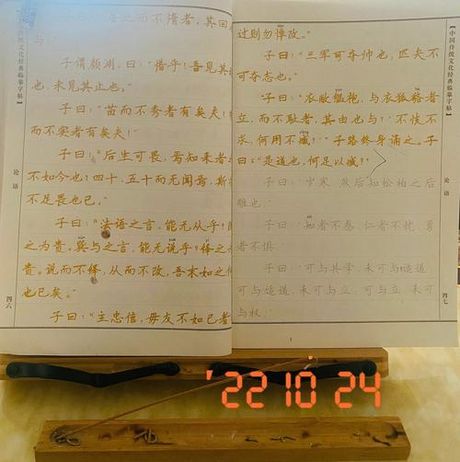 语之而不惰者，其回
与！”
子谓颜渊，曰：“惜乎！吾见其
也，未见其止也。”
子曰：“苗而不秀者有矣夫！
而不实者有矣夫！”
子曰：“后生可畏，焉知来者
不如今也！四十，五十而无闻焉，斯
不足畏也已。”
子曰：“法语之言，能无从乎！
之为贵。巽与之言，能无说乎！绎之
贵。说而不绎，从而不改，吾末如之
也已矣。”
子曰：“主忠信，毋友不如己者
论语
四六
过则勿惮改。”
子曰：“三军可夺帅也，匹夫不
可夺志也。”
子曰：“衣敝缊袍，与衣狐貉者
立，而不耻者，其由也与！‘不忮不
求，何用不臧！’”子路终身诵之。子
曰：“是道也，何足以臧！”
子曰：“岁寒，然后知松柏之后
雕也。”
子曰：“知者不惑，仁者不忧，勇
者不惧。”
子曰：“可与共学，未可与适道；
可与适道，未可与立；可与立，未可
与权。”
【中国传统文化经典临摹字帖】
论语
四七
'22 10 24